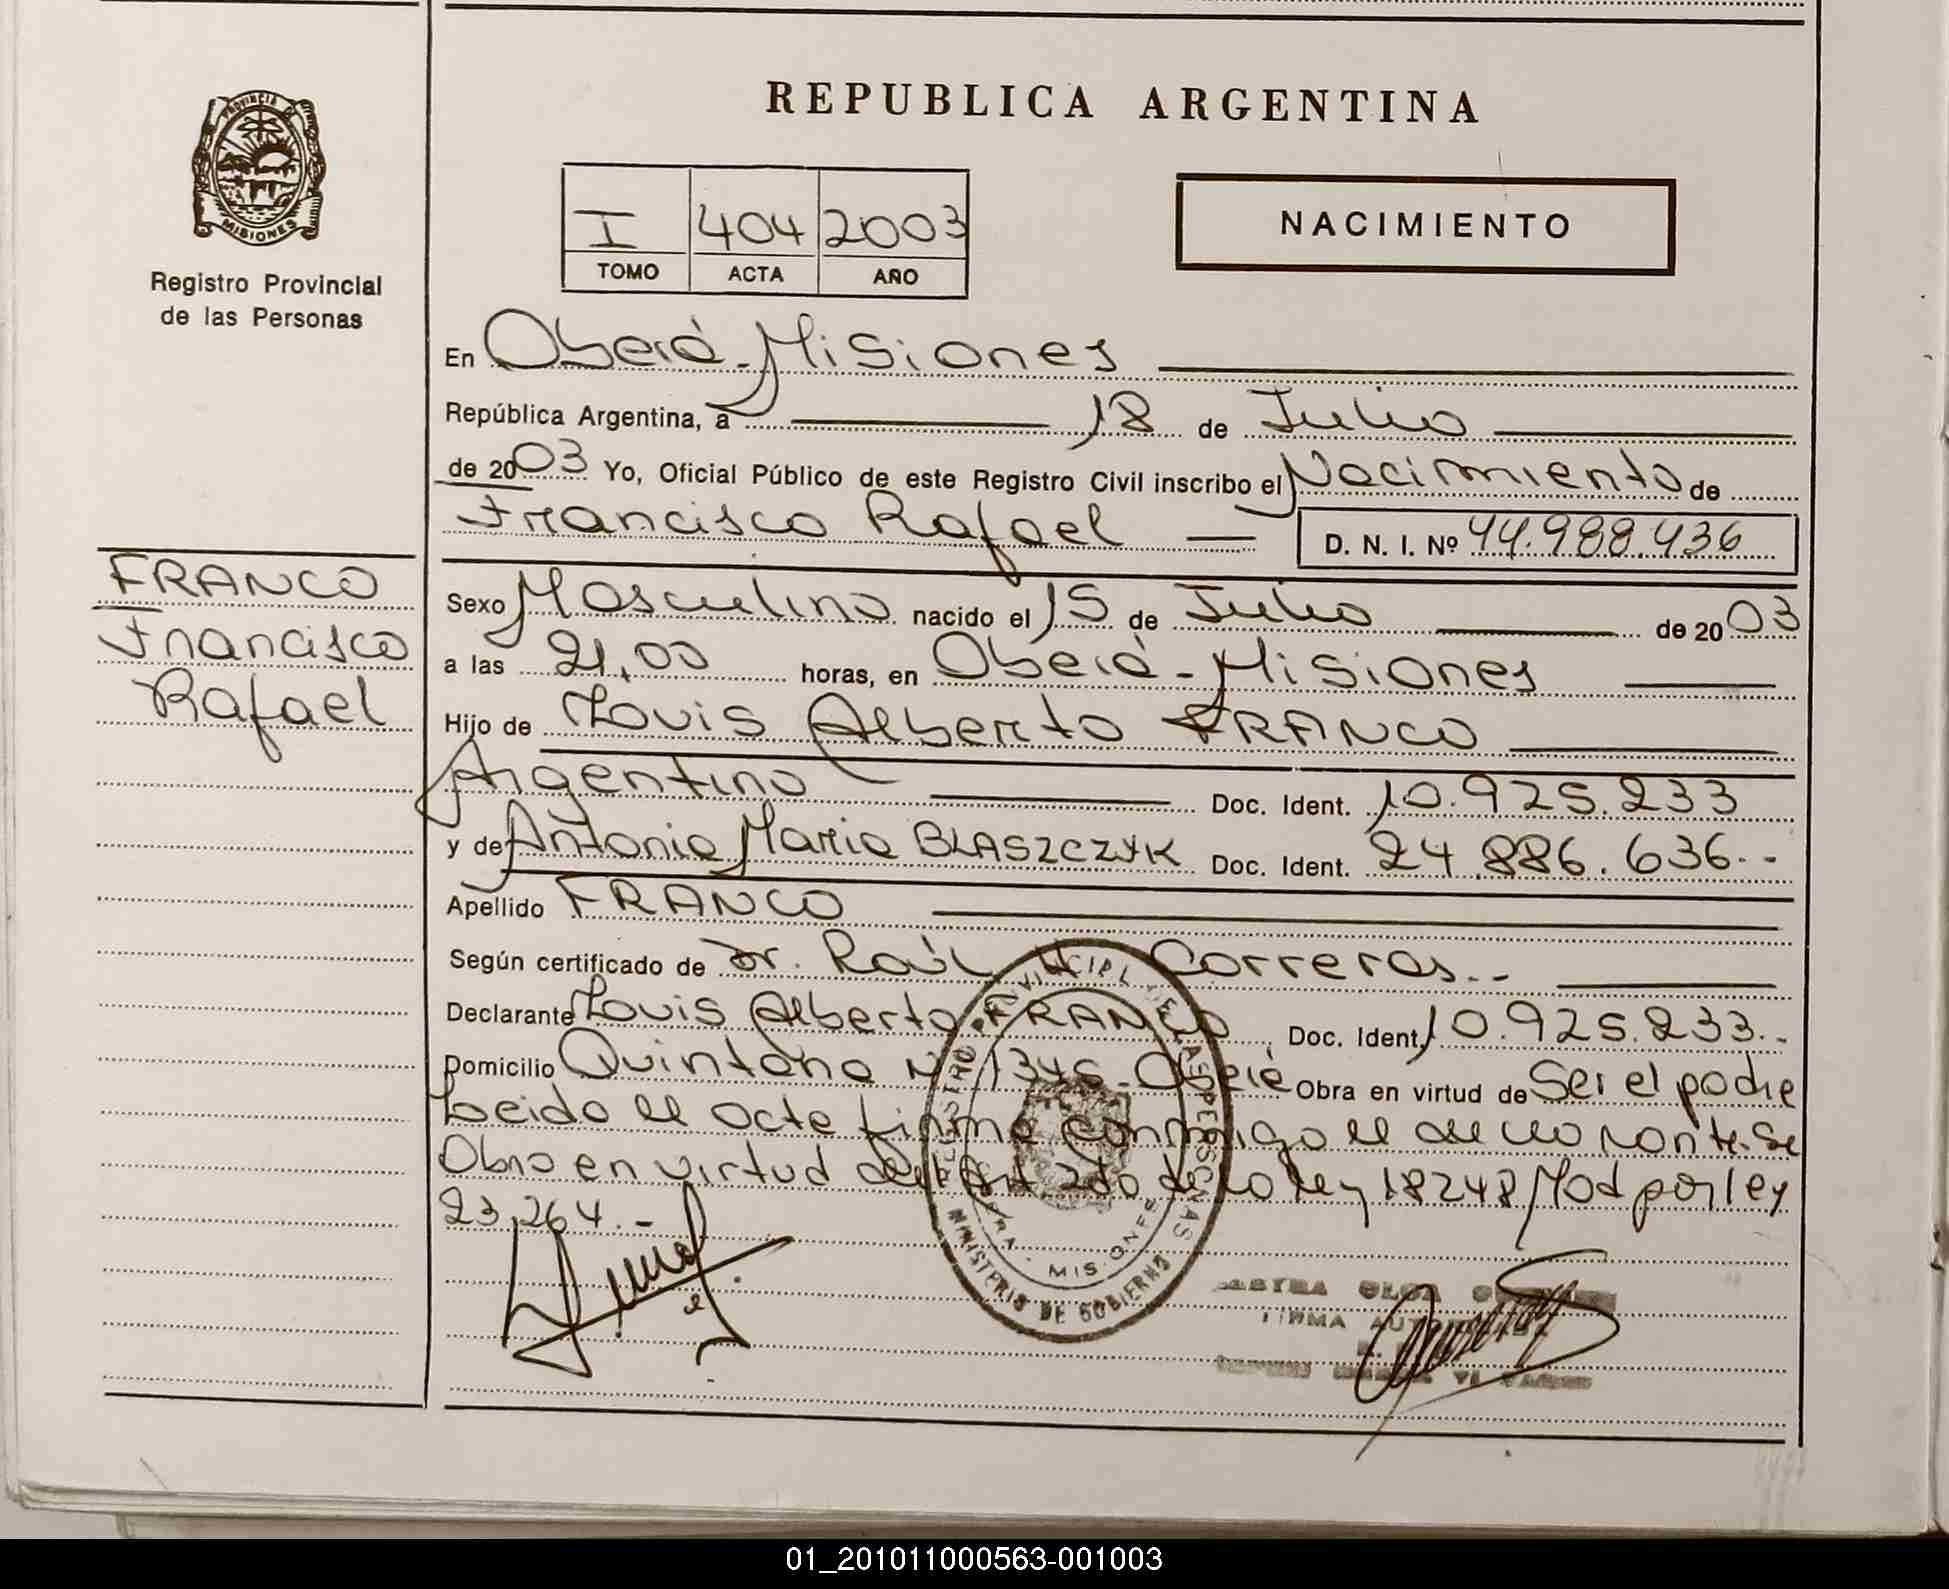 REPUBLICA ARGENTINA
PROVINCIA
MISIONES
Registro Provincial
de las Personas
I 404 2003
TOMO ACTA AÑO
NACIMIENTO
En Oberá - Misiones
República Argentina, a 18 de Julio
de 2003 Yo, Oficial Público de este Registro Civil inscribo el Nacimiento de
Francisco Rafael D. N. I. Nº 44.988.436
FRANCO
Francisco
Rafael
Sexo Masculino nacido el 15 de Julio de 2003
a las 21,00 horas, en Oberá - Misiones
Hijo de Louis Alberto FRANCO
Argentino Doc. Ident. 10.925.233
y de Antonia Maria BLASZCZYK Doc. Ident. 24.886.636.-
Apellido FRANCO
Según certificado de Dr. Raúl Correras.-
Declarante Louis Alberto FRANCO Doc. Ident. 10.925.233.-
Domicilio Quintana Nº 1345 - Oberá Obra en virtud de Ser el padre
Leida el acta firma conmigo el declarante. Se
Obra en virtud del Art 2do de la ley 18248 Mod por ley
23,264.-
REGISTRO PROVINCIAL DE LAS PERSONAS
MINISTERIO DE GOBIERNO
OLGA
FIRMA
01_201011000563-001003